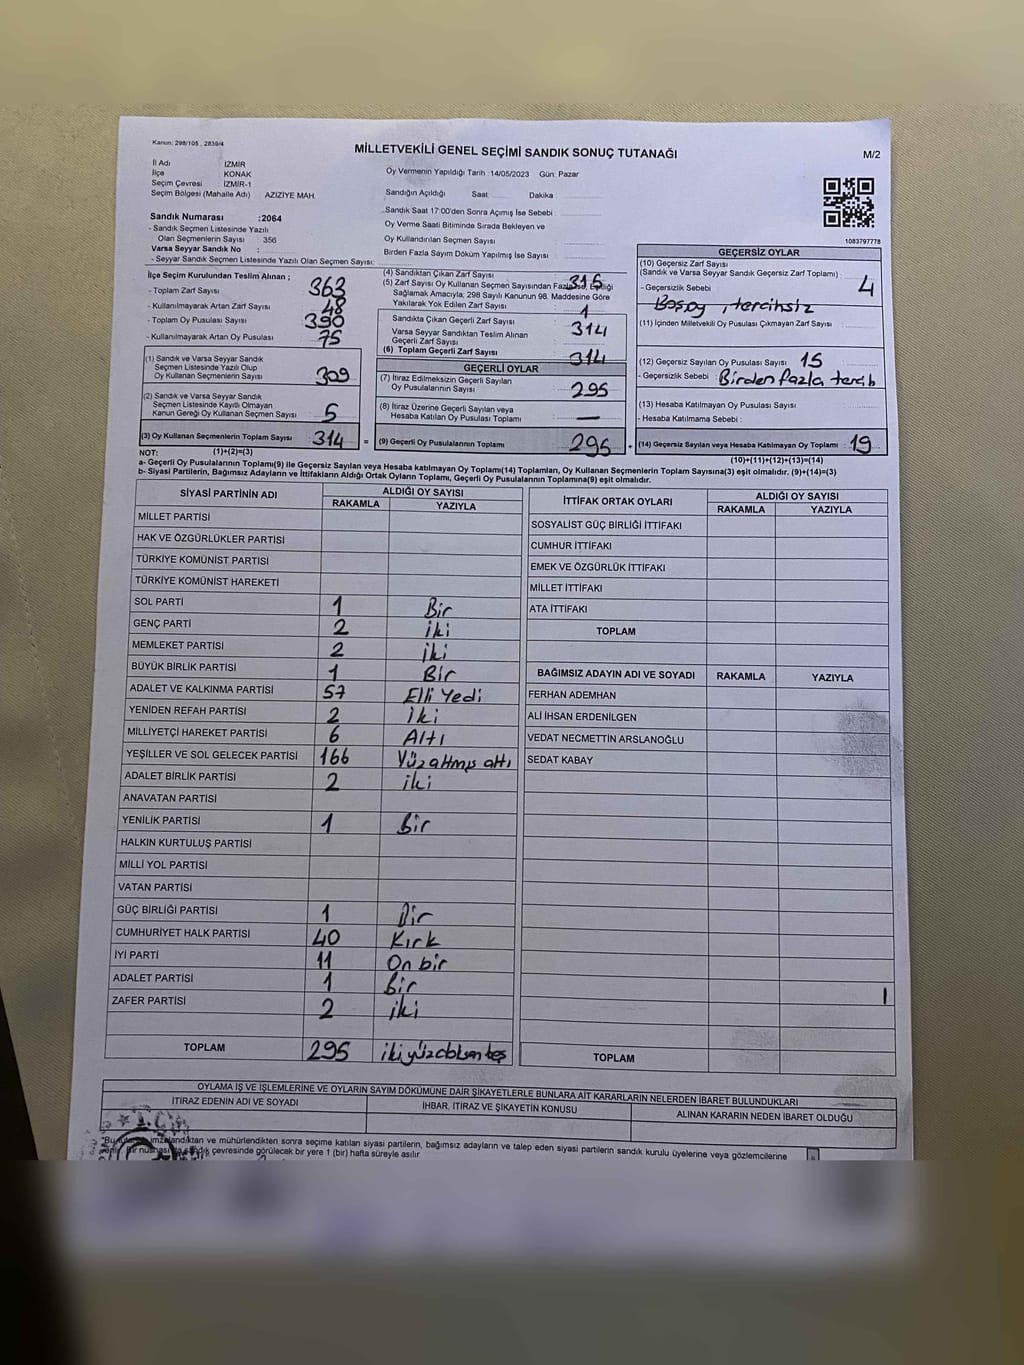 Kanun: 298/105 , 2839/4
MİLLETVEKİLİ GENEL SEÇİMİ SANDIK SONUÇ TUTANAĞI
M/2
İl Adı İZMİR
İlçe KONAK
Seçim Çevresi İZMİR-1
Seçim Bölgesi (Mahalle Adı) AZİZİYE MAH.
Oy Vermenin Yapıldığı Tarih :14/05/2023 Gün: Pazar
Sandığın Açıldığı Saat Dakika
Sandık Saat 17:00'den Sonra Açımış İse Sebebi :
Oy Verme Saati Bitiminde Sırada Bekleyen ve
Oy Kullandırılan Seçmen Sayısı
Birden Fazla Sayım Döküm Yapılmış İse Sayısı
1083797778
Sandık Numarası :2064
- Sandık Seçmen Listesinde Yazılı
Olan Seçmenlerin Sayısı : 356
Varsa Seyyar Sandık No :
- Seyyar Sandık Seçmen Listesinde Yazılı Olan Seçmen Sayısı:
İlçe Seçim Kurulundan Teslim Alınan ;
- Toplam Zarf Sayısı 363
- Kullanılmayarak Artan Zarf Sayısı 48
- Toplam Oy Pusulası Sayısı 390
- Kullanılmayarak Artan Oy Pusulası 75
(1) Sandık ve Varsa Seyyar Sandık
Seçmen Listesinde Yazılı Olup
Oy Kullanan Seçmenlerin Sayısı 309
(2) Sandık ve Varsa Seyyar Sandık
Seçmen Listesinde Kayıtlı Olmayan
Kanun Gereği Oy Kullanan Seçmen Sayısı 5
(3) Oy Kullanan Seçmenlerin Toplam Sayısı 314 =
(1)+(2)=(3)
(4) Sandıktan Çıkan Zarf Sayısı 315
(5) Zarf Sayısı Oy Kullanan Seçmen Sayısından Fazla İse, Eşitliği
Sağlamak Amacıyla; 298 Sayılı Kanunun 98. Maddesine Göre
Yakılarak Yok Edilen Zarf Sayısı 1
Sandıkta Çıkan Geçerli Zarf Sayısı 314
Varsa Seyyar Sandıktan Teslim Alınan
Geçerli Zarf Sayısı
(6) Toplam Geçerli Zarf Sayısı 314
GEÇERLİ OYLAR
(7) İtiraz Edilmeksizin Geçerli Sayılan
Oy Pusulalarının Sayısı 295
(8) İtiraz Üzerine Geçerli Sayılan veya
Hesaba Katılan Oy Pusulası Toplamı —
(9) Geçerli Oy Pusulalarının Toplamı 295 +
GEÇERSİZ OYLAR
(10) Geçersiz Zarf Sayısı
(Sandık ve Varsa Seyyar Sandık Geçersiz Zarf Toplamı) : 4
- Geçersizlik Sebebi
Boşoy , tercihsiz
(11) İçinden Milletvekili Oy Pusulası Çıkmayan Zarf Sayısı :
(12) Geçersiz Sayılan Oy Pusulası Sayısı : 15
- Geçersizlik Sebebi Birden fazla tercih
(13) Hesaba Katılmayan Oy Pusulası Sayısı
- Hesaba Katılmama Sebebi :
(14) Geçersiz Sayılan veya Hesaba Katılmayan Oy Toplamı : 19
(10)+(11)+(12)+(13)=(14)
NOT:
a- Geçerli Oy Pusulalarının Toplamı(9) ile Geçersiz Sayılan veya Hesaba katılmayan Oy Toplamı(14) Toplamları, Oy Kullanan Seçmenlerin Toplam Sayısına(3) eşit olmalıdır. (9)+(14)=(3)
b- Siyasi Partilerin, Bağımsız Adayların ve İttifakların Aldığı Ortak Oyların Toplamı, Geçerli Oy Pusulalarının Toplamına(9) eşit olmalıdır.
SİYASİ PARTİNİN ADI ALDIĞI OY SAYISI
RAKAMLA YAZIYLA
MİLLET PARTİSİ
HAK VE ÖZGÜRLÜKLER PARTİSİ
TÜRKİYE KOMÜNİST PARTİSİ
TÜRKİYE KOMÜNİST HAREKETİ
SOL PARTİ 1 Bir
GENÇ PARTİ 2 iki
MEMLEKET PARTİSİ 2 iki
BÜYÜK BİRLİK PARTİSİ 1 Bir
ADALET VE KALKINMA PARTİSİ 57 Elli Yedi
YENİDEN REFAH PARTİSİ 2 iki
MİLLİYETÇİ HAREKET PARTİSİ 6 Altı
YEŞİLLER VE SOL GELECEK PARTİSİ 166 Yüzaltmış altı
ADALET BİRLİK PARTİSİ 2 iki
ANAVATAN PARTİSİ
YENİLİK PARTİSİ 1 Bir
HALKIN KURTULUŞ PARTİSİ
MİLLİ YOL PARTİSİ
VATAN PARTİSİ
GÜÇ BİRLİĞİ PARTİSİ 1 Bir
CUMHURİYET HALK PARTİSİ 40 Kırk
İYİ PARTİ 11 On bir
ADALET PARTİSİ 1 Bir
ZAFER PARTİSİ 2 iki
TOPLAM 295 ikiyüzdoksan beş
İTTİFAK ORTAK OYLARI ALDIĞI OY SAYISI
RAKAMLA YAZIYLA
SOSYALİST GÜÇ BİRLİĞİ İTTİFAKI
CUMHUR İTTİFAKI
EMEK VE ÖZGÜRLÜK İTTİFAKI
MİLLET İTTİFAKI
ATA İTTİFAKI
TOPLAM
BAĞIMSIZ ADAYIN ADI VE SOYADI RAKAMLA YAZIYLA
FERHAN ADEMHAN
ALİ İHSAN ERDENİLGEN
VEDAT NECMETTİN ARSLANOĞLU
SEDAT KABAY
TOPLAM
OYLAMA İŞ VE İŞLEMLERİNE VE OYLARIN SAYIM DÖKÜMÜNE DAİR ŞİKAYETLERLE BUNLARA AİT KARARLARIN NELERDEN İBARET BULUNDUKLARI
İTİRAZ EDENİN ADI VE SOYADI İHBAR, İTİRAZ VE ŞİKAYETİN KONUSU ALINAN KARARIN NEDEN İBARET OLDUĞU
T.C.
imzalandıktan ve mühürlendikten sonra seçime katılan siyasi partilerin, bağımsız adayların ve talep eden siyasi partilerin sandık kurulu üyelerine veya gözlemcilerine
bir nüshası da sandık çevresinde görülecek bir yere 1 (bir) hafta süreyle asılır.